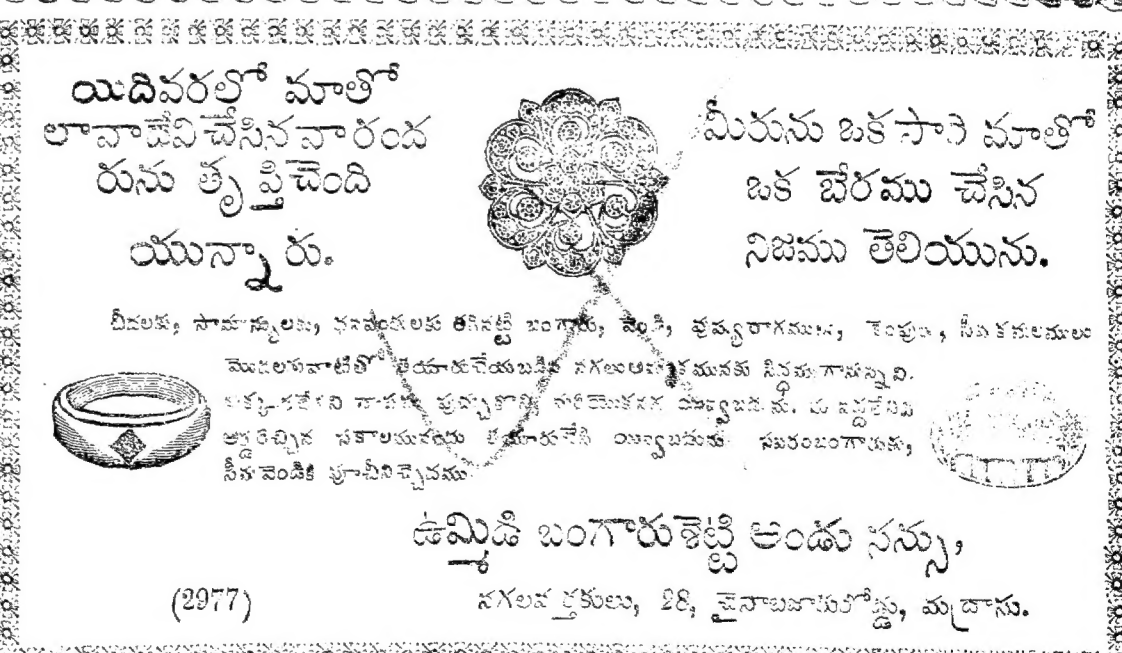 యిదివరలో మాతో
లావాదేవి చేసిన వారంద
రును తృప్తిచెంది
యున్నారు.
మీరును ఒక సారి మాతో
ఒక బేరము చేసిన
నిజము తెలియును.
బీదలకు, సామాన్యులకు, ధనవంతులకు తగినట్టి బంగారు, వెండి, పుష్యరాగములు, కెంపులు,
మొదలగువాటితో తయారుచేయబడిన నగలు సిద్ధముగానున్నవి.
ఆర్డరిచ్చిన సకాలమునందు తయారుచేసి యివ్వబడును.
వెండికి పూచీనిచ్చెదము.
ఉమ్మిడి బంగారుశెట్టి అండు సన్సు,
(2977)
నగలవర్తకులు, 28, చైనాబజారురోడ్డు, మద్రాసు.